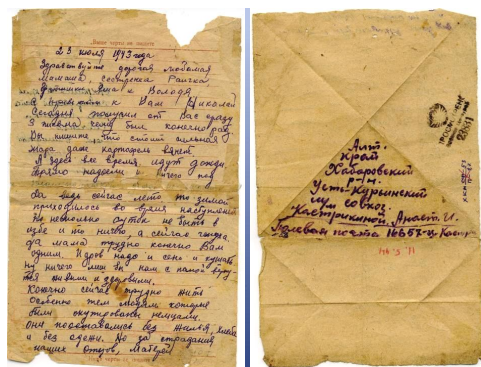 Ниже черты не писать
23 июля 1943 года
Здравствуйте дорогая любимая
Мамаша, сестренка Раичка,
и Володя
к Вам Николай
Сегодня получил от Вас сразу
3 письма, чему был конечно рад
Вы пишите, что стоит сильная
жара даже картофель вянет
А здесь все время идут дожди
прямо надоели и ничего под
Да ведь сейчас лето то зимой
приходилось во время наступления
По несколько суток не быть в
избе и то ничего, а сейчас ерунда,
да мама трудно конечно Вам
одним. И дров надо и сена и кушать
ну ничего мы с папой
живыми и здоровыми.
Конечно сейчас трудно жить
Особенно тем людям которые
были оккупированы немцами.
Они пооставались без жилья, хлеба
и без одежи. Но за страдания
наших Отцов, Матерей
Алт.
Край
Хабаровский
р-н
Усть-Курьинский
совхоз.
Кастрикиной. Анаст. И.
Полевая почта 16653-ц. Кастр.